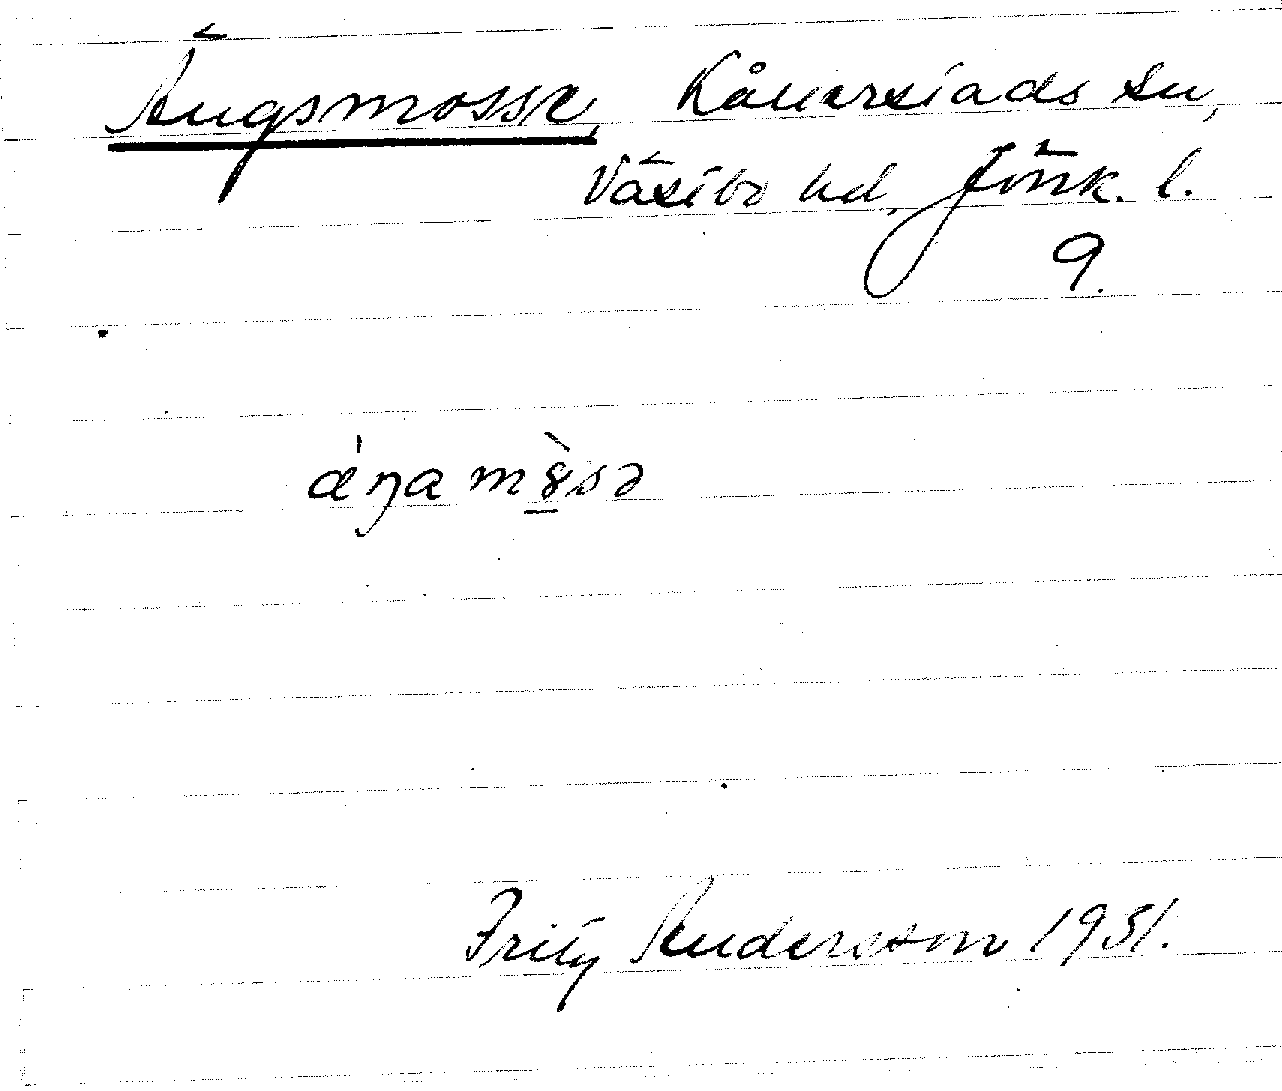 Ängsmosse, Kållerstads sn,
Västbo hd, Jönk. l.
9.
áŋa mòsə
Fritz Andersson 1931.